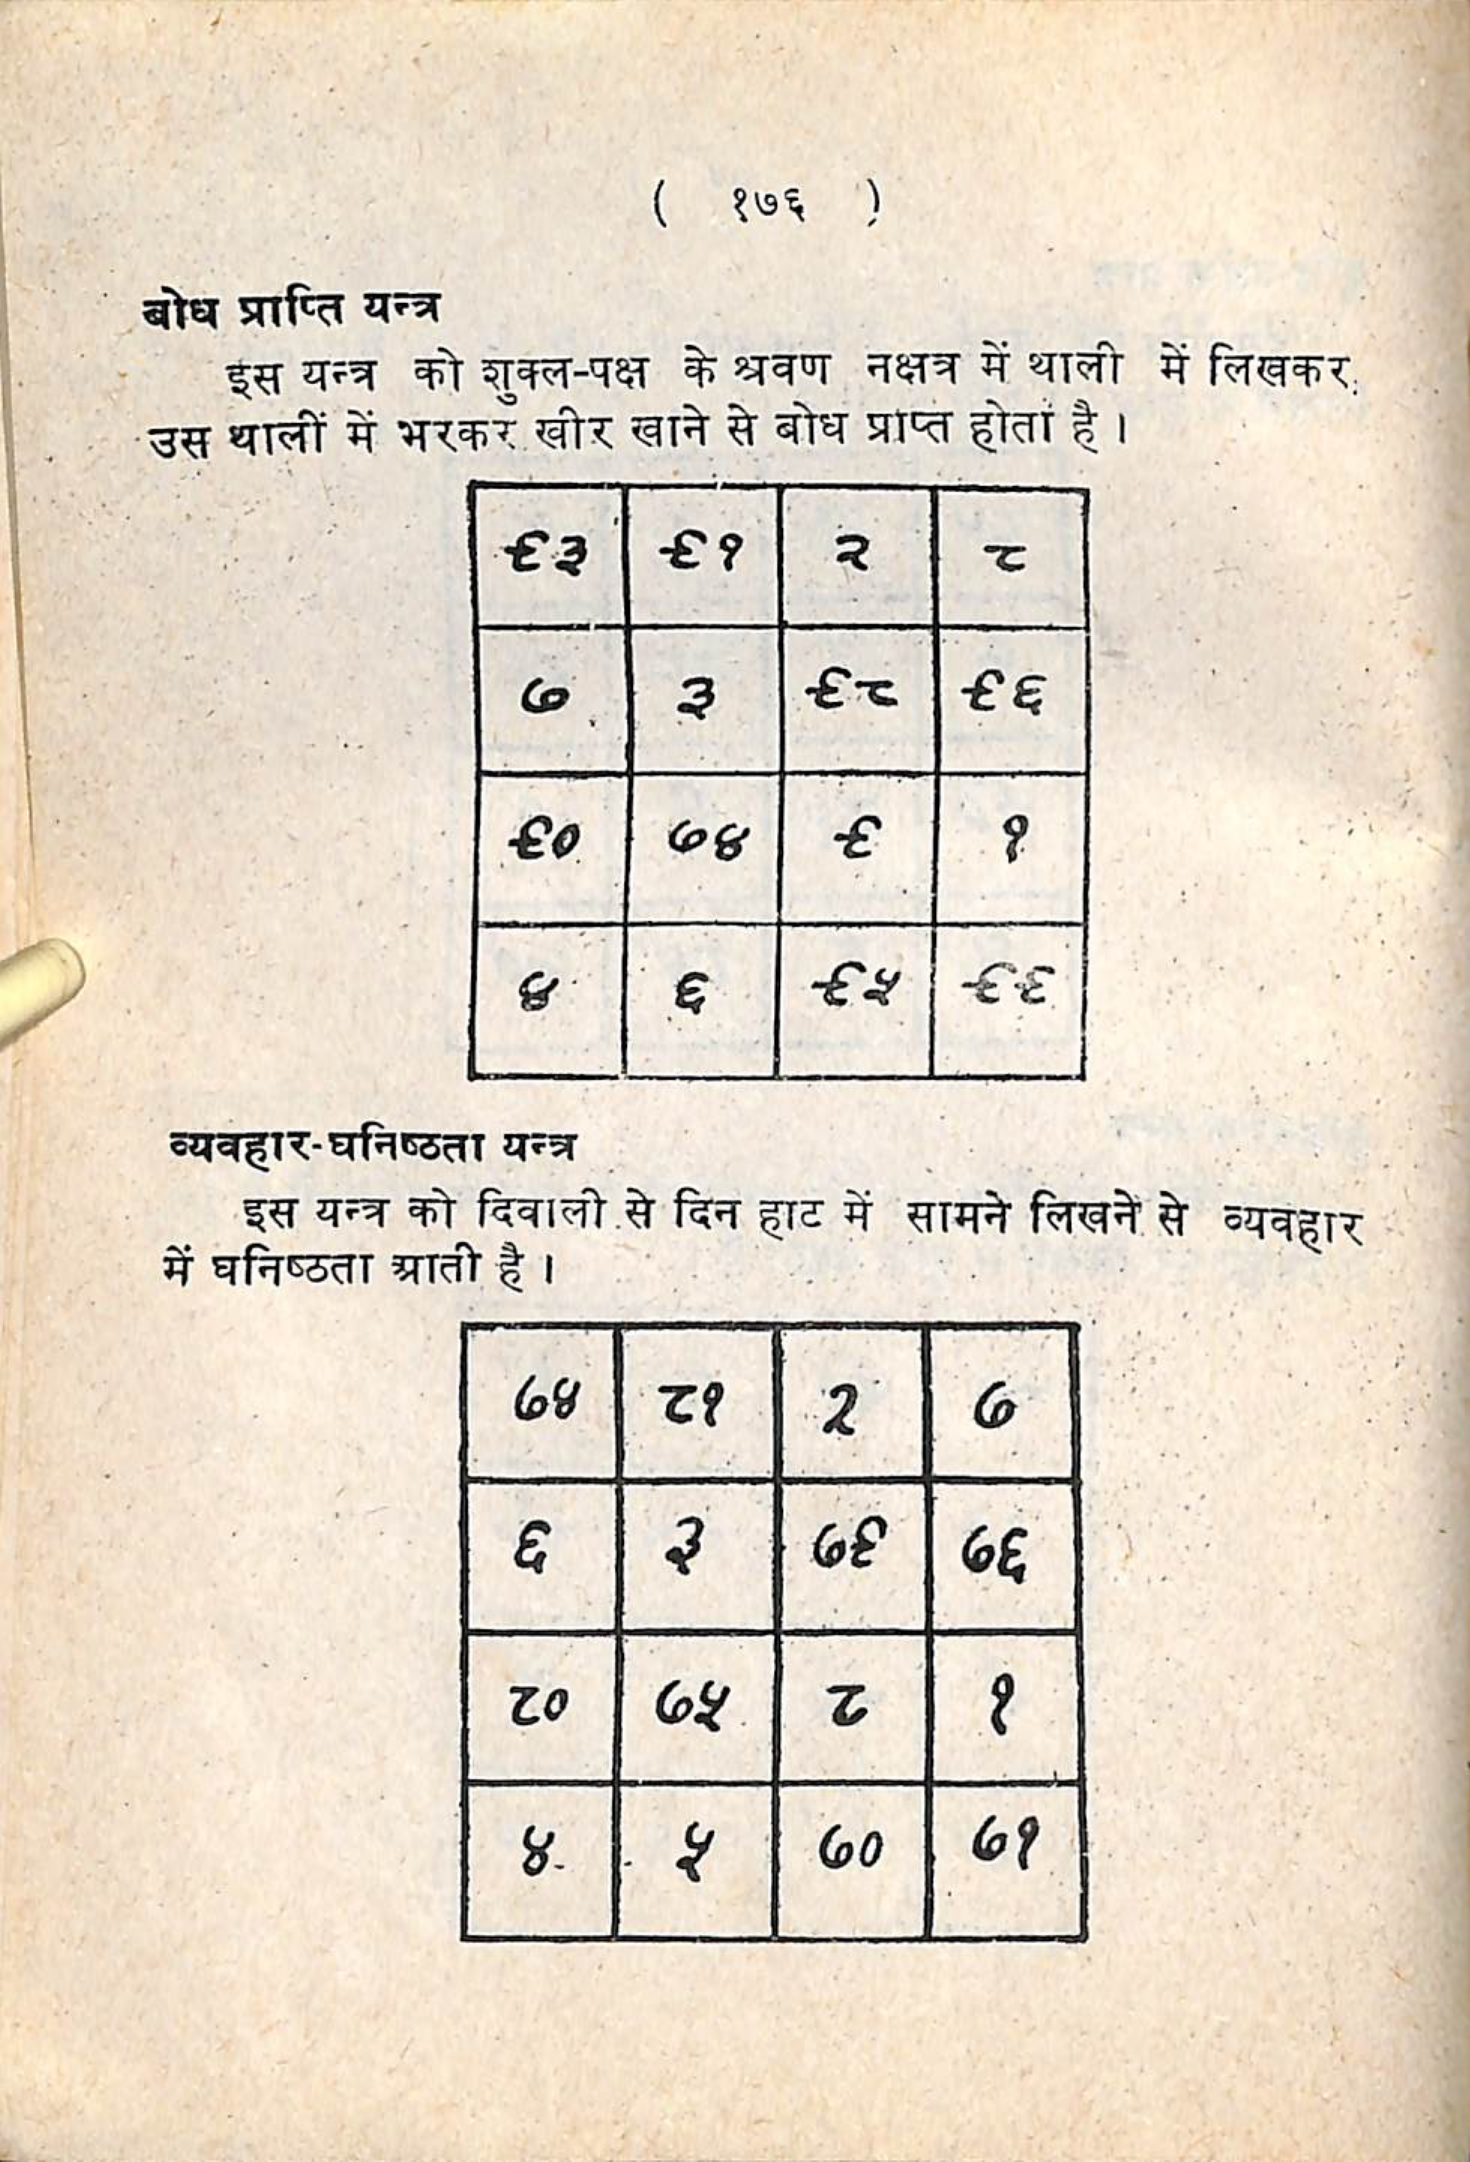 ( १७६ )
बोध प्राप्ति यन्त्र
इस यन्त्र को शुक्ल-पक्ष के श्रवण नक्षत्र में थाली में लिखकर
उस थालीं में भरकर खीर खाने से बोध प्राप्त होता है ।
९३ ९१ २ ८
७ ३ ९८ ९६
९० ७४ ९ १
४ ६ ९५ ९९
व्यवहार-घनिष्ठता यन्त्र
इस यन्त्र को दिवाली से दिन हाट में सामने लिखने से व्यवहार
में घनिष्ठता आती है ।
७४ ८१ २ ७
६ ३ ७९ ७६
८० ७५ ८ १
४ ५ ७० ७१